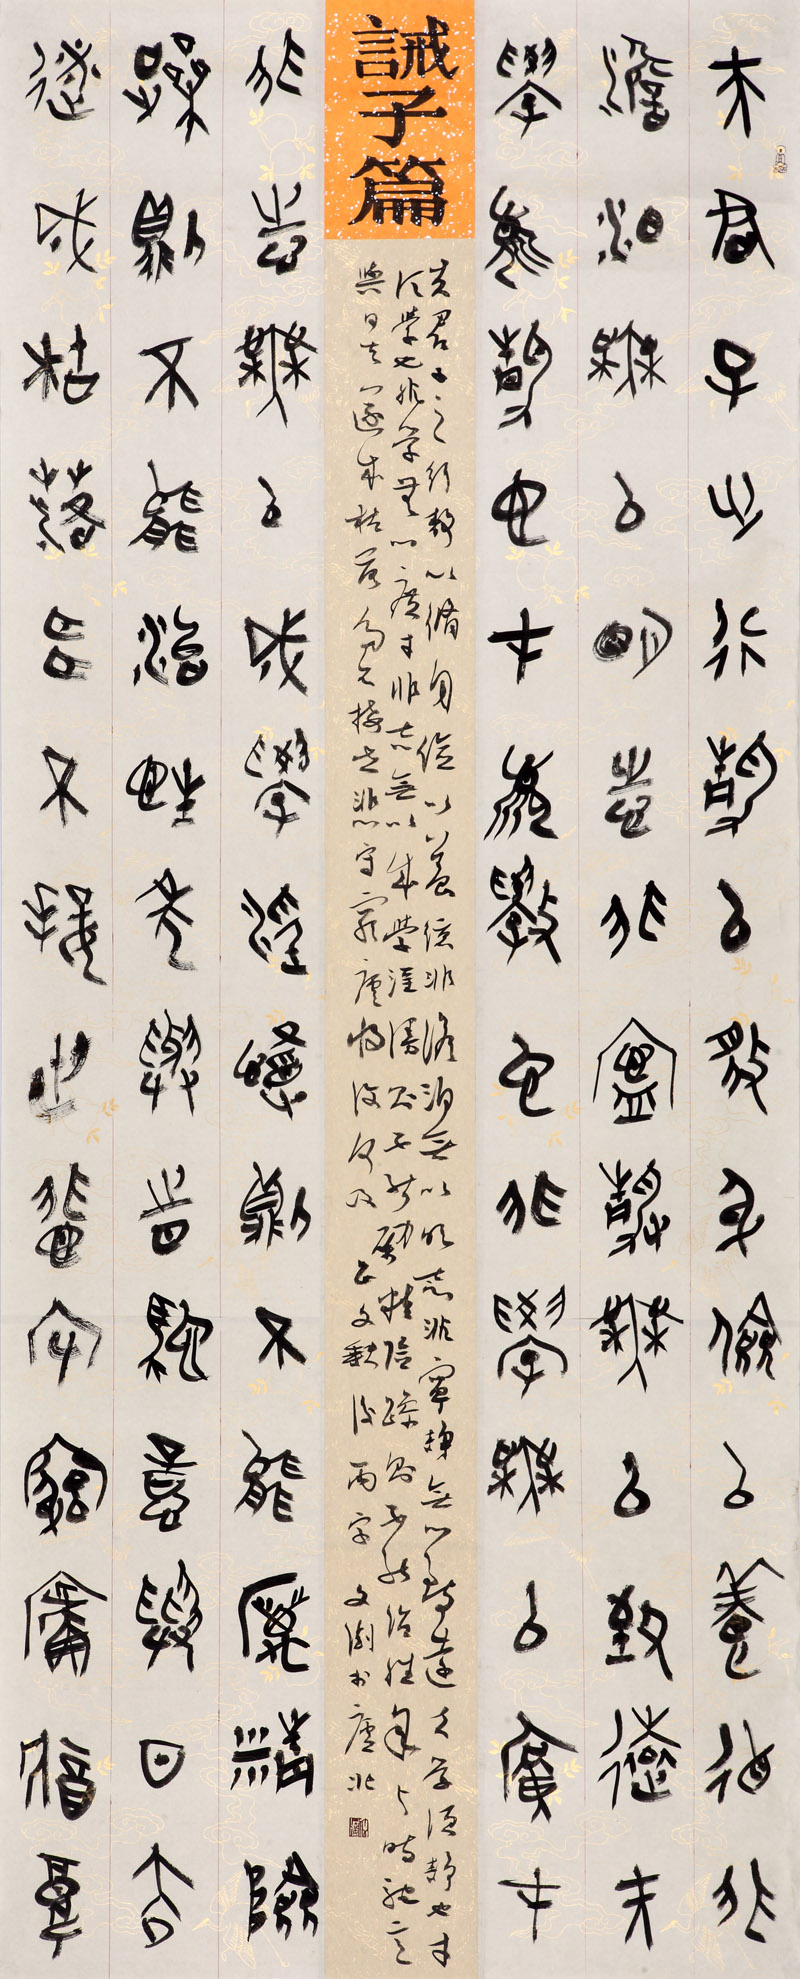 夫君子之行靜以脩身儉以養德非
澹泊無以明志非寧靜無以致遠夫
學須靜也才須學也非學無以廣才
誡子篇
夫君子之行靜以脩身儉以養德非澹泊無以明志非寧靜無以致遠夫學須靜也才
須學也非學無以廣才非志無以成學淫漫則不能勵精險躁則不能治性年與時馳意
與日去遂成枯落多不接世悲守窮廬將復何及 正文缺後兩字
非志無以成學淫慢則不能厲精險
躁則不能治性年與時馳意與日去
遂成枯落多不接世悲守窮廬將復